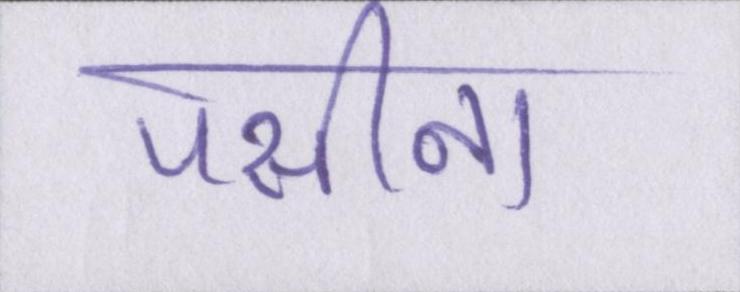 पसीना